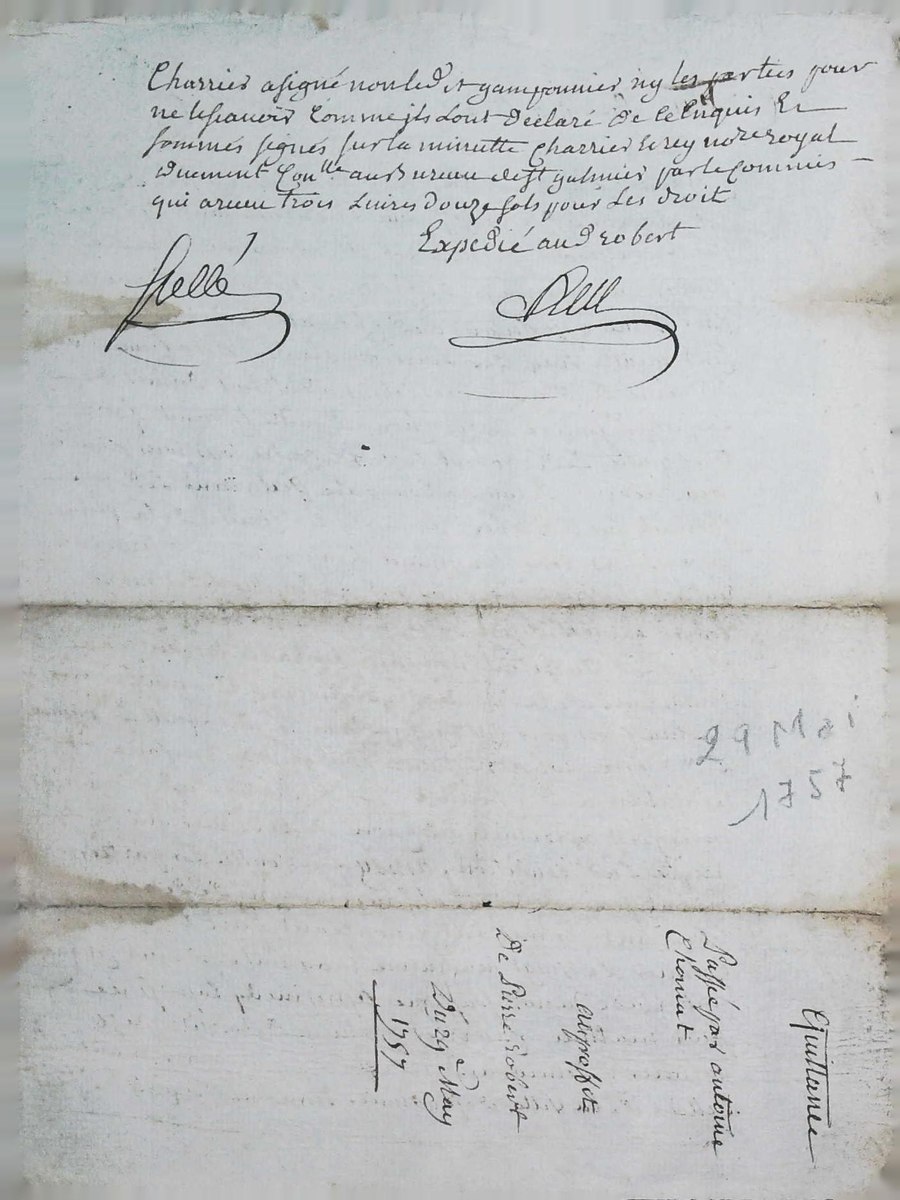 Charrier a signé non led it gamponnier ny les parties pour
ne le scavoir comme ils l'ont declaré de ce enquis et
sommés signés sur la minutte Charrier et rey no.re royal
Duement Con.lle au Bureau de st galmier par le Commis -
qui a receu trois Livres Douze sols pour les droit
Expedié aud Robert
Scellé
29 Mai
1757
Quittance
Passé par antoine
Chomat
au proffit
De Robert
Du 29 e May
1757